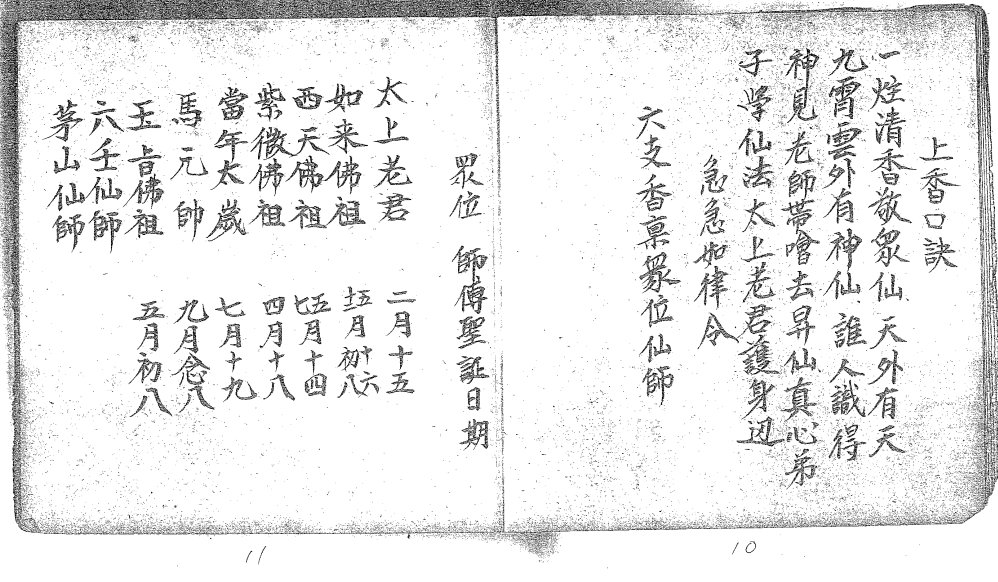 上香口訣
一炷清香敬眾仙天外有天
九霄雲外有神仙誰人識得
神見老師帶噲去昇仙真心弟
子學仙法太上老君護身边
急急如律令
六支香稟眾位仙師
10
眾位 師傅聖証日期
太上老君 二月十五
如来佛祖 十五月初十六八
西天佛祖 五七月十四
紫微佛祖 四月十八
當年太歲 七月十九
馬元帥 九月念八
玉旨佛祖 五月初八
六壬仙師
茅山仙師
11